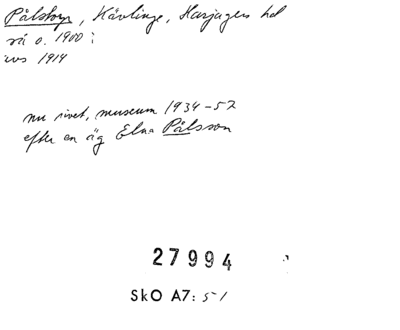 Pålstorp, Kävlinge, Harjagers hd
o. 1900 i
1914
nu rivet, museum 1934-57
efter en äg Elna Pålsson
27994
SkO A7: 51